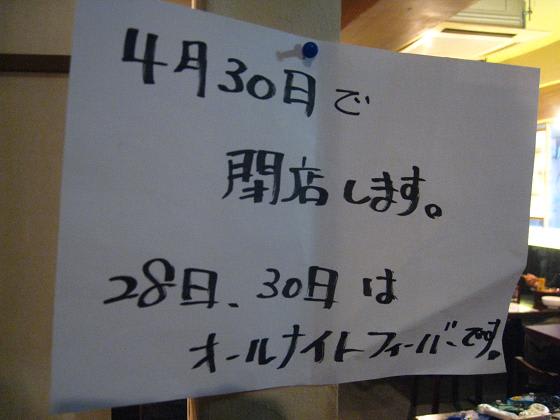 4月30日で
閉店します。
28日、30日は
オールナイトフィーバーです。